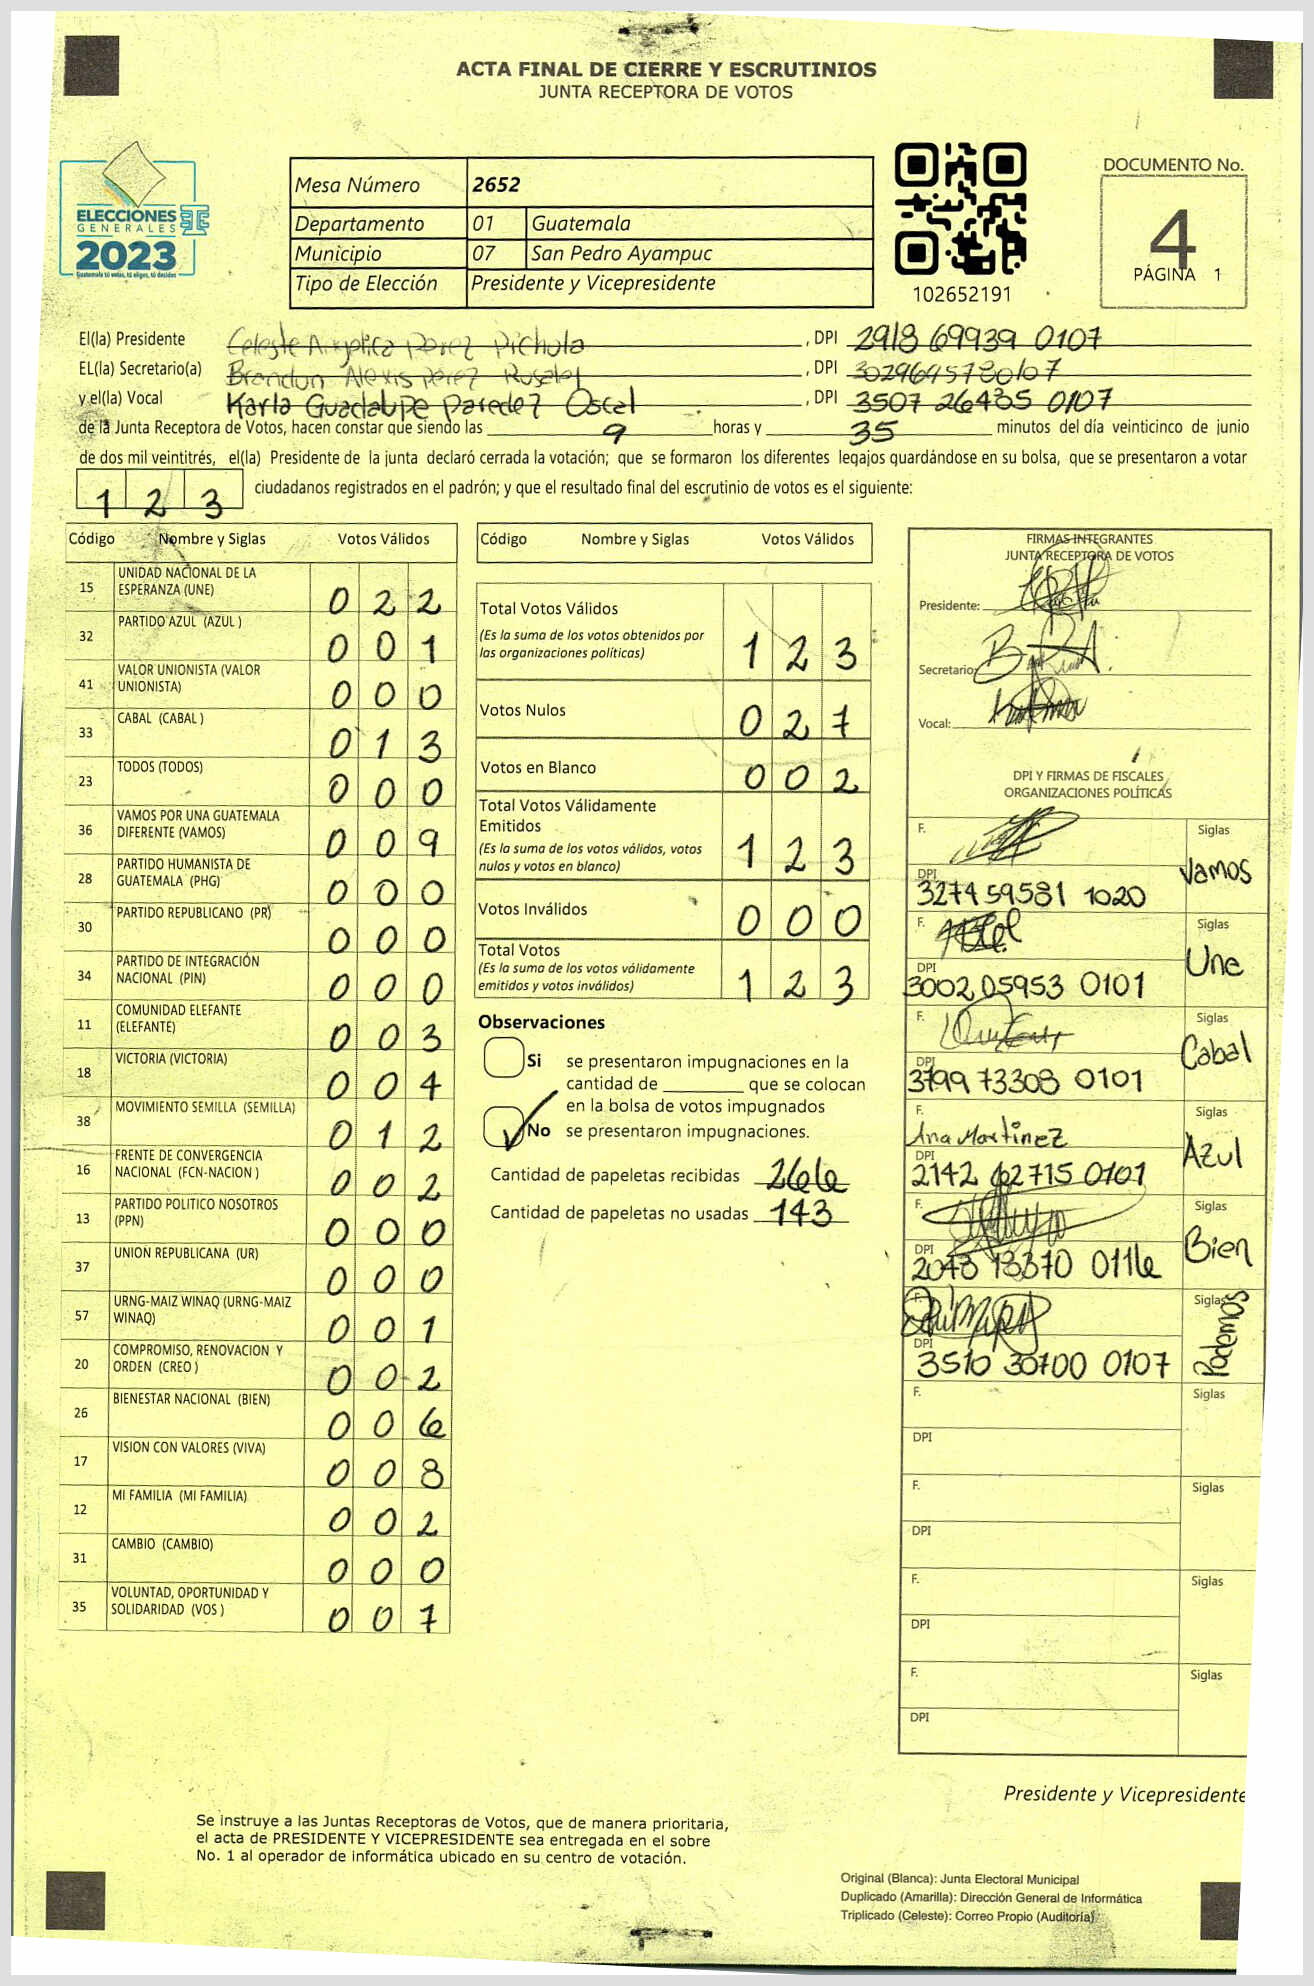 ACTA FINAL DE CIERRE Y ESCRUTINIOS
JUNTA RECEPTORA DE VOTOS
ELECCIONES
GENERALES
2023
Guatemala tú votas, tú eliges, tú decides
Mesa Número 2652
Departamento 01 Guatemala
Municipio 07 San Pedro Ayampuc
Tipo de Elección Presidente y Vicepresidente
102652191
DOCUMENTO No.
4
PÁGINA 1
El(la) Presidente Celeste Angelica Perez Pichola , DPI 2918 69939 0107
EL(la) Secretario(a) Brandon Alexis Perez , DPI 3029695780107
y el(la) Vocal Karla Guadalupe Paredez Oscal , DPI 3507 26485 0107
de la Junta Receptora de Votos, hacen constar que siendo las 9 horas y 35 minutos del día veinticinco de junio
de dos mil veintitrés, el(la) Presidente de la junta declaró cerrada la votación; que se formaron los diferentes legajos guardándose en su bolsa, que se presentaron a votar
1 2 3 ciudadanos registrados en el padrón; y que el resultado final del escrutinio de votos es el siguiente:
Código Nombre y Siglas Votos Válidos
15 UNIDAD NACIONAL DE LA ESPERANZA (UNE) 0 2 2
32 PARTIDO AZUL (AZUL ) 0 0 1
41 VALOR UNIONISTA (VALOR UNIONISTA) 0 0 0
33 CABAL (CABAL ) 0 1 3
23 TODOS (TODOS) 0 0 0
36 VAMOS POR UNA GUATEMALA DIFERENTE (VAMOS) 0 0 9
28 PARTIDO HUMANISTA DE GUATEMALA (PHG) 0 0 0
30 PARTIDO REPUBLICANO (PR) 0 0 0
34 PARTIDO DE INTEGRACIÓN NACIONAL (PIN) 0 0 0
11 COMUNIDAD ELEFANTE (ELEFANTE) 0 0 3
18 VICTORIA (VICTORIA) 0 0 4
38 MOVIMIENTO SEMILLA (SEMILLA) 0 1 2
16 FRENTE DE CONVERGENCIA NACIONAL (FCN-NACION ) 0 0 2
13 PARTIDO POLITICO NOSOTROS (PPN) 0 0 0
37 UNION REPUBLICANA (UR) 0 0 0
57 URNG-MAIZ WINAQ (URNG-MAIZ WINAQ) 0 0 1
20 COMPROMISO, RENOVACION Y ORDEN (CREO ) 0 0 2
26 BIENESTAR NACIONAL (BIEN) 0 0 6
17 VISION CON VALORES (VIVA) 0 0 8
12 MI FAMILIA (MI FAMILIA) 0 0 2
31 CAMBIO (CAMBIO) 0 0 0
35 VOLUNTAD, OPORTUNIDAD Y SOLIDARIDAD (VOS ) 0 0 7
Código Nombre y Siglas Votos Válidos
Total Votos Válidos
(Es la suma de los votos obtenidos por
las organizaciones políticas) 1 2 3
Votos Nulos 0 2 7
Votos en Blanco 0 0 2
Total Votos Válidamente
Emitidos
(Es la suma de los votos válidos, votos
nulos y votos en blanco) 1 2 3
Votos Inválidos 0 0 0
Total Votos
(Es la suma de los votos válidamente
emitidos y votos inválidos) 1 2 3
Observaciones
Si se presentaron impugnaciones en la
cantidad de ________ que se colocan
en la bolsa de votos impugnados
No se presentaron impugnaciones.
Cantidad de papeletas recibidas 266
Cantidad de papeletas no usadas 143
FIRMAS INTEGRANTES
JUNTA RECEPTORA DE VOTOS
Presidente:
Secretario:
Vocal:
DPI Y FIRMAS DE FISCALES
ORGANIZACIONES POLÍTICAS
F. Siglas Vamos
DPI 3274 59581 1020
F. Siglas Une
DPI 3002 05953 0101
F. Siglas Cabal
DPI 3799 73308 0101
F. Ana Martinez Siglas Azul
DPI 2142 62715 0101
F. Siglas Bien
DPI 2043 13370 0116
F. Siglas Podemos
DPI 3510 30700 0107
F. Siglas
DPI
F. Siglas
DPI
F. Siglas
DPI
F. Siglas
DPI
Presidente y Vicepresidente
Se instruye a las Juntas Receptoras de Votos, que de manera prioritaria,
el acta de PRESIDENTE Y VICEPRESIDENTE sea entregada en el sobre
No. 1 al operador de informática ubicado en su centro de votación.
Original (Blanca): Junta Electoral Municipal
Duplicado (Amarilla): Dirección General de Informática
Triplicado (Celeste): Correo Propio (Auditoría)